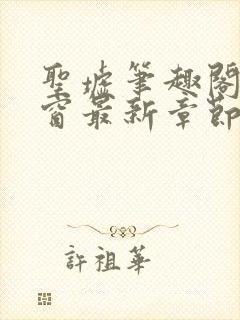 聖墟筆趣閣
窗最新章節
許祖華